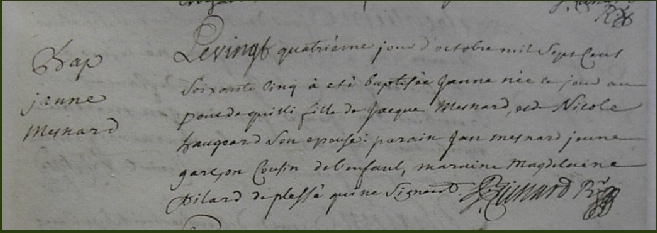 Bap
janne
Mesnard
Le vingt quatriéme jour d'octobre mil Sept Cent
Soixante Cinq à eté baptisée janne née le jour au
pont de quilli fille de jacque Mesnard, et de Nicole
haugeard Son epouse: parain jan mesnard jeune
garçon Cousin de l'enfant, maraine Magdelaine
pilard de plessé qui ne Signent